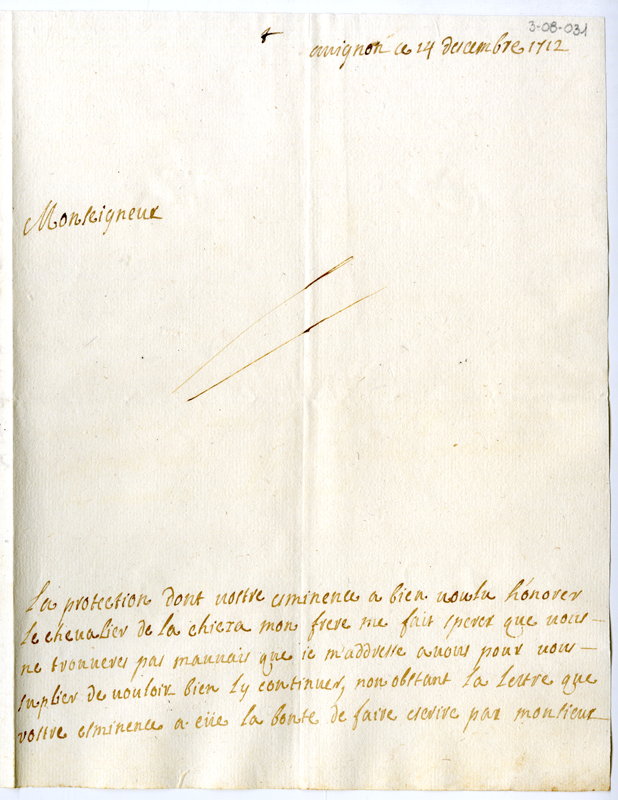 3-08-031
avignon ce 24 descembre 1712
Monseigneur
La protection dont vostre esminence a bien voulu hónorer
Le chevalier de la chieza mon frere me fait sperer que vous
ne trouveres pas mauvais que ie m'addresse avous pour vous
suplier de vouloir bien Ly continuer, non obstant La lettre que
vostre esminence a eüe la bonte de faire escrire par monsieur